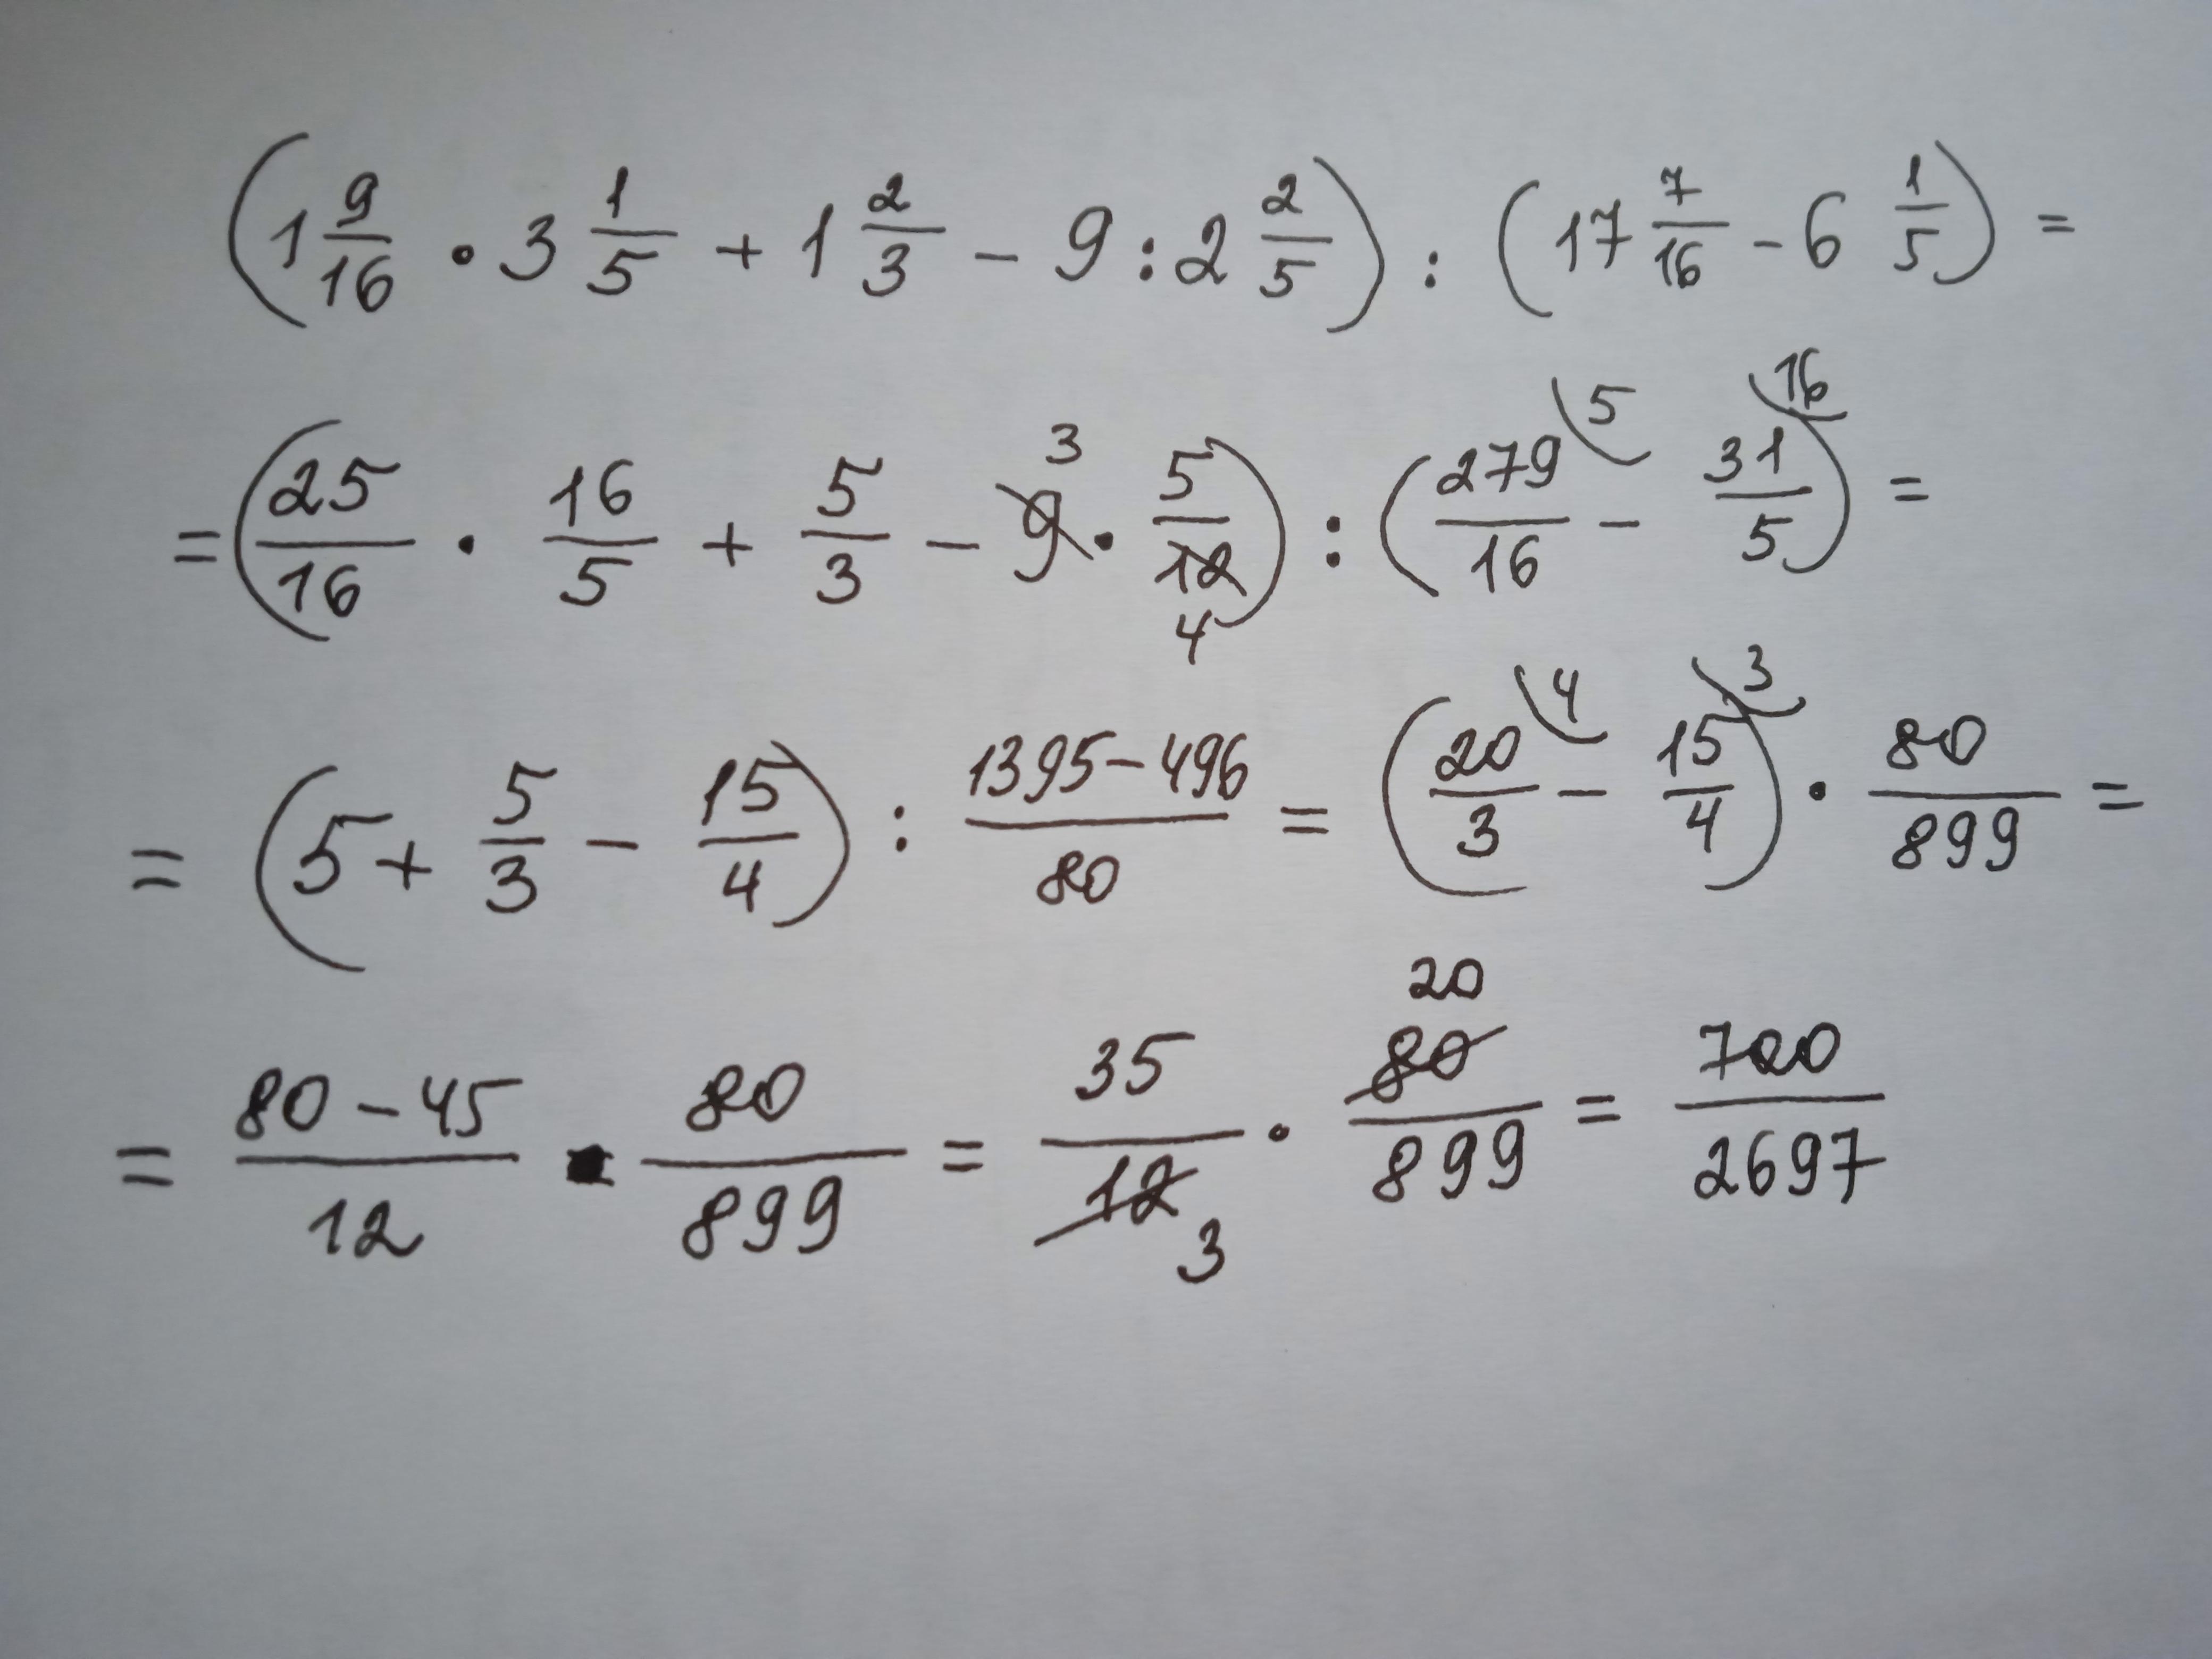 (1 9/16 · 3 1/5 + 1 2/3 - 9 : 2 2/5) : (17 7/16 - 6 1/5) =
= (25/16 · 16/5 + 5/3 - 9 3 · 5/12 4) : (279/16 5 - 31/5 16) =
= (5 + 5/3 - 15/4) : (1395 - 496)/80 = (20/3 4 - 15/4 3) · 80/899 =
= (80 - 45)/12 · 80/899 = 35/12 3 · 80 20/899 = 720/2697